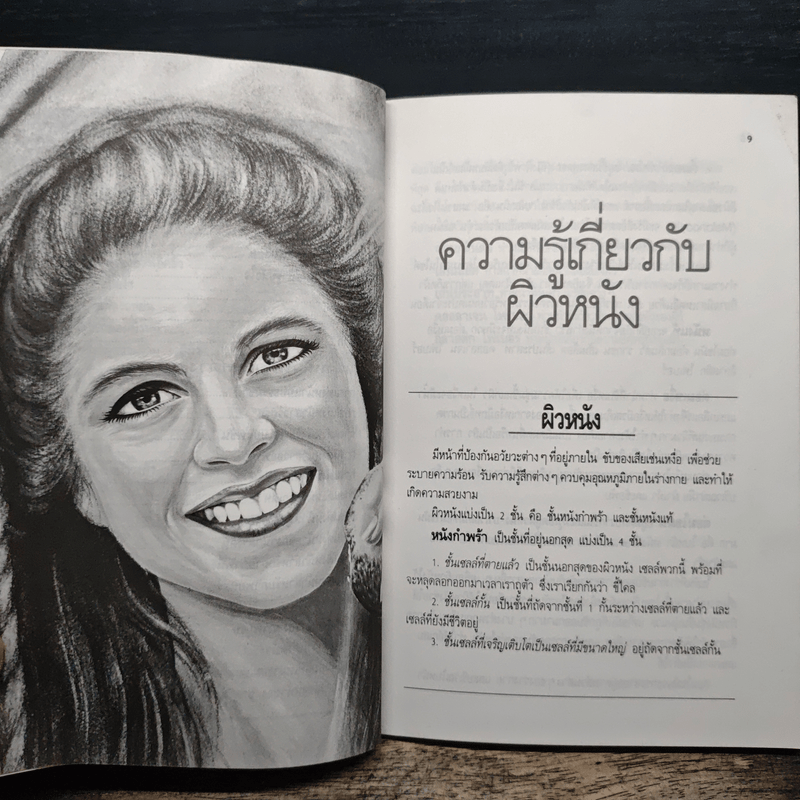 9
ความรู้เกี่ยวกับ
ผิวหนัง
ผิวหนัง
มีหน้าที่ป้องกันอวัยวะต่าง ๆ ที่อยู่ภายใน ขับของเสียเช่นเหงื่อ เพื่อช่วย
ระบายความร้อน รับความรู้สึกต่าง ๆ ควบคุมอุณหภูมิภายในร่างกาย และทำให้
เกิดความสวยงาม
ผิวหนังแบ่งเป็น 2 ชั้น คือ ชั้นหนังกำพร้า และชั้นหนังแท้
หนังกำพร้า เป็นชั้นที่อยู่นอกสุด แบ่งเป็น 4 ชั้น
1. ชั้นเซลล์ที่ตายแล้ว เป็นชั้นนอกสุดของผิวหนัง เซลล์พวกนี้ พร้อมที่
จะหลุดลอกออกมาเวลาเราถูตัว ซึ่งเราเรียกกันว่า ขี้ไคล
2. ชั้นเซลล์กั้น เป็นชั้นที่ถัดจากชั้นที่ 1 กั้นระหว่างเซลล์ที่ตายแล้ว และ
เซลล์ที่ยังมีชีวิตอยู่
3. ชั้นเซลล์ที่เจริญเติบโตเป็นเซลล์ที่มีขนาดใหญ่ อยู่ถัดจากชั้นเซลล์กั้น